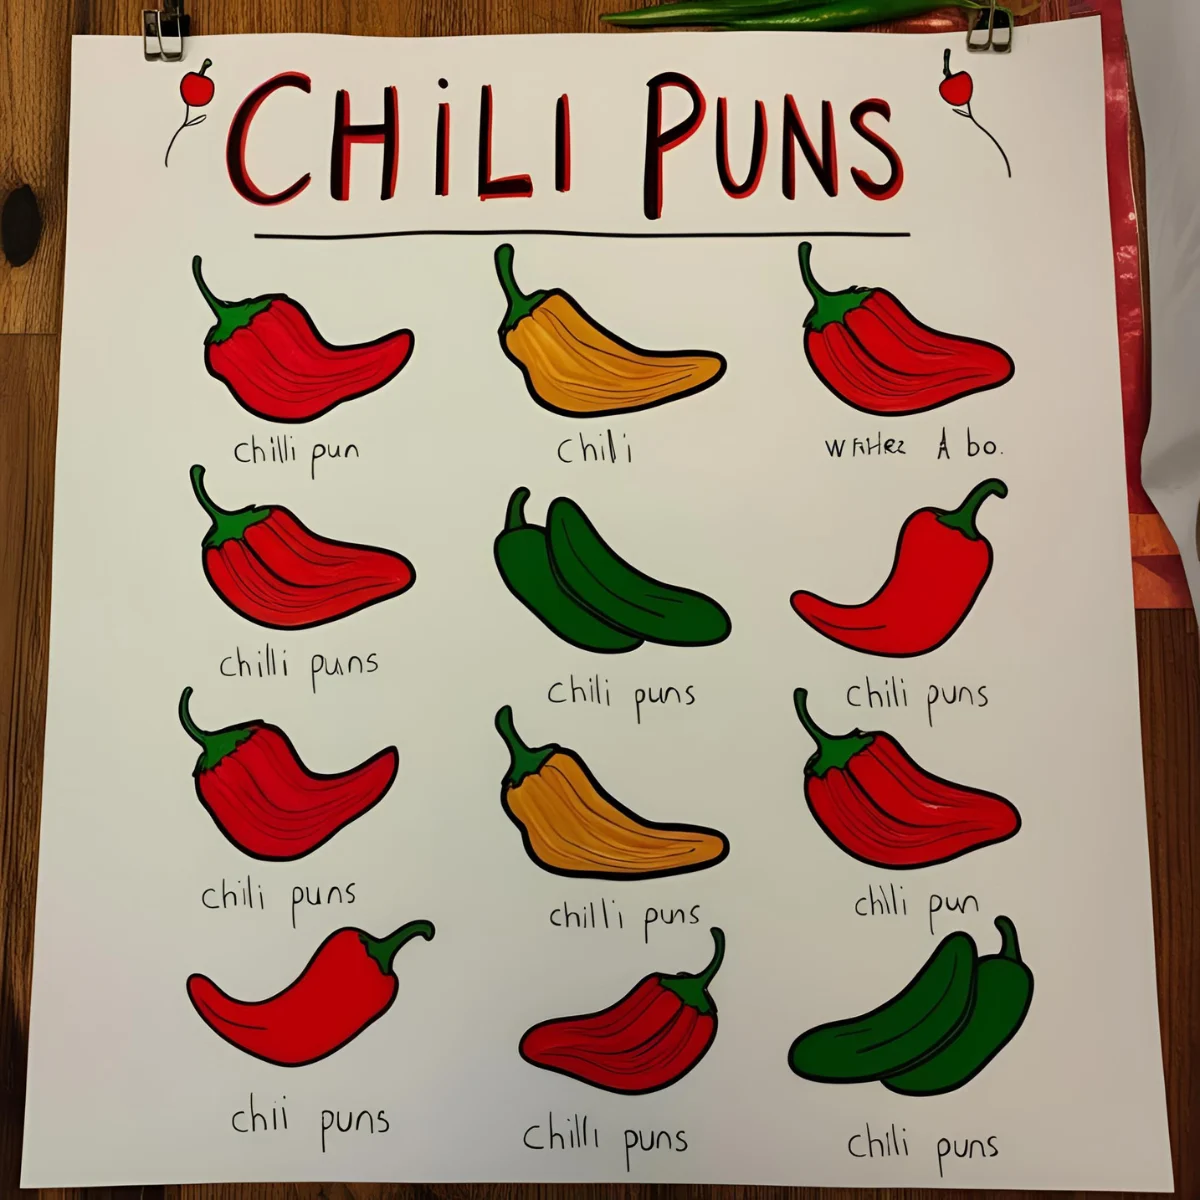 CHiLI PUNS
chilli pun
chili
A bo.
chilli puns
chili puns
chili puns
chili puns
chilli puns
chili pun
chii puns
chilli puns
chili puns